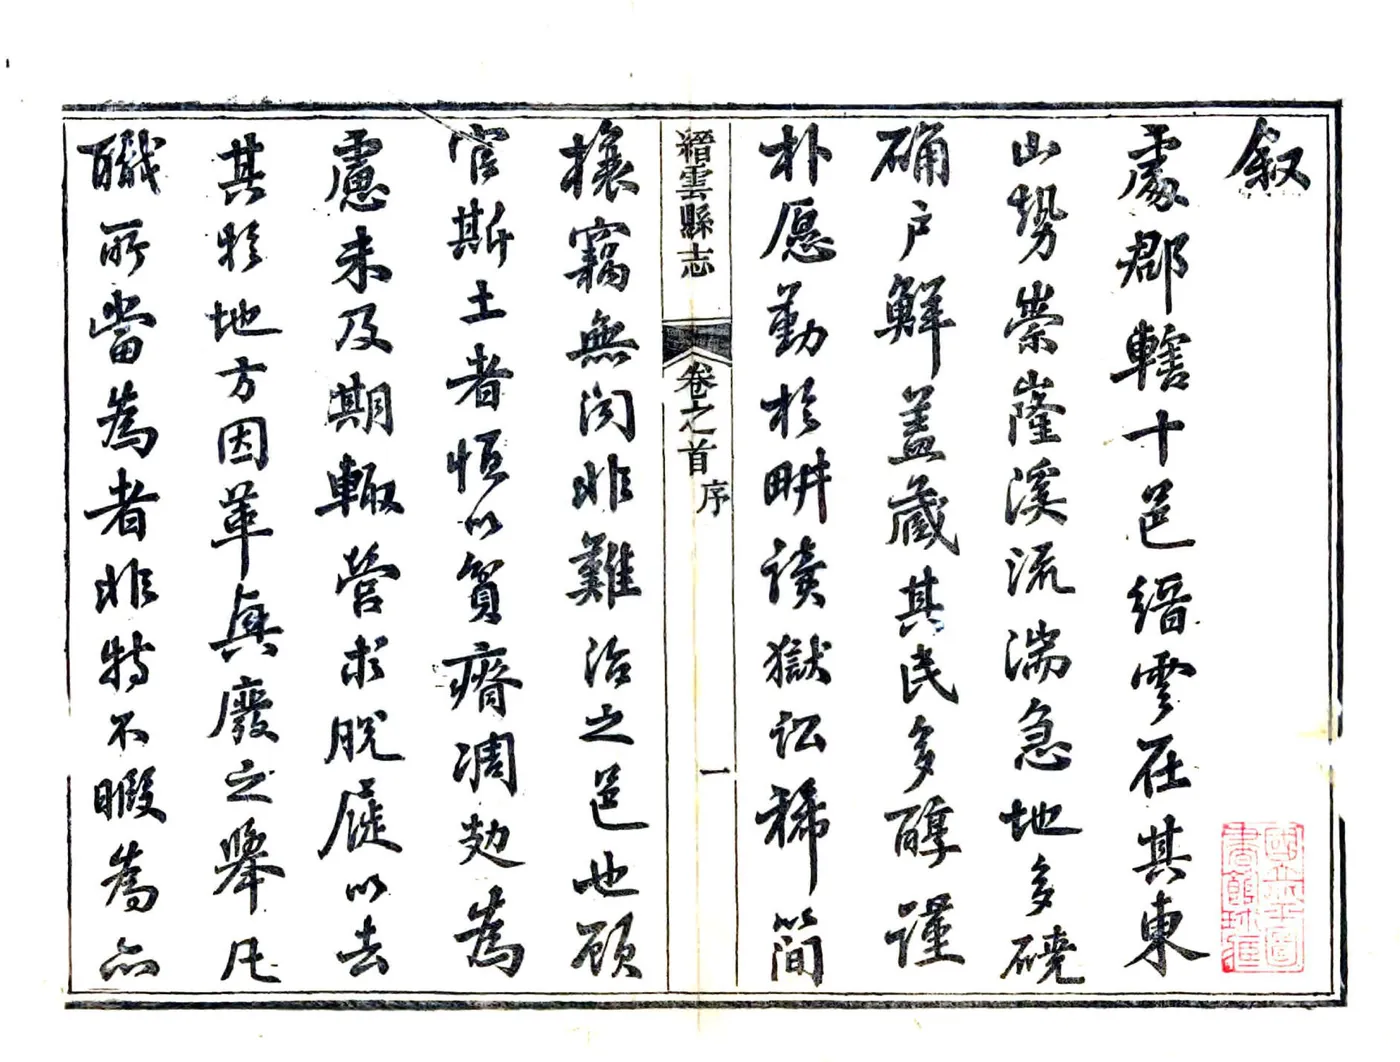 叙
處郡轄十邑縉雲在其東
山勢崇嶐溪流湍急地多磽
确户鮮蓋藏其民多醇謹
朴愿勤於畊讀獄訟稀簡
縉雲縣志 卷之首 序 一
攘竊無闻非難治之邑也顧
官斯土者恒以貧瘠凋敝為
慮未及期輙營求脫屣以去
其於地方因革興廢之舉凡
職所當為者非特不暇為亦
國立北平圖書館珍藏